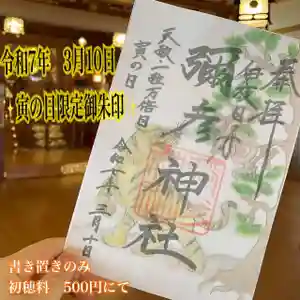 令和7年　3月10日
寅の日限定御朱印
奉拝
彌彦神社
天赦一粒万倍日
寅の日
令和七年三月十日
書き置きのみ
初穂料　500円にて